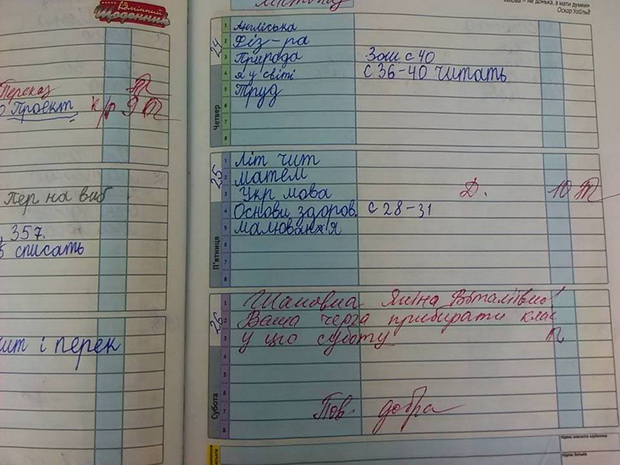 Щоденник
Переказ
Проєкт к/р 9
Пер на виб
357.
списать
і перек
Листопад
мова – не донька, а мати думки»
Оскар Уайльд
24
Четвер
1 Англіська
2 Фіз-ра
3 Природа Зош с 40
4 Я у світі с 36-40 читать
5 Труд
6
7
8
25
П'ятниця
1 Літ чит
2 матем
3 Укр мова Д. 10
4 Основи здоров. с 28-31
5 малювання
6
7
8
26
Субота
1 Шановна Яніна Віталіївно!
2 Ваша черга прибирати клас
3 у цю суботу
4
5
6
7 Пов. добра
8